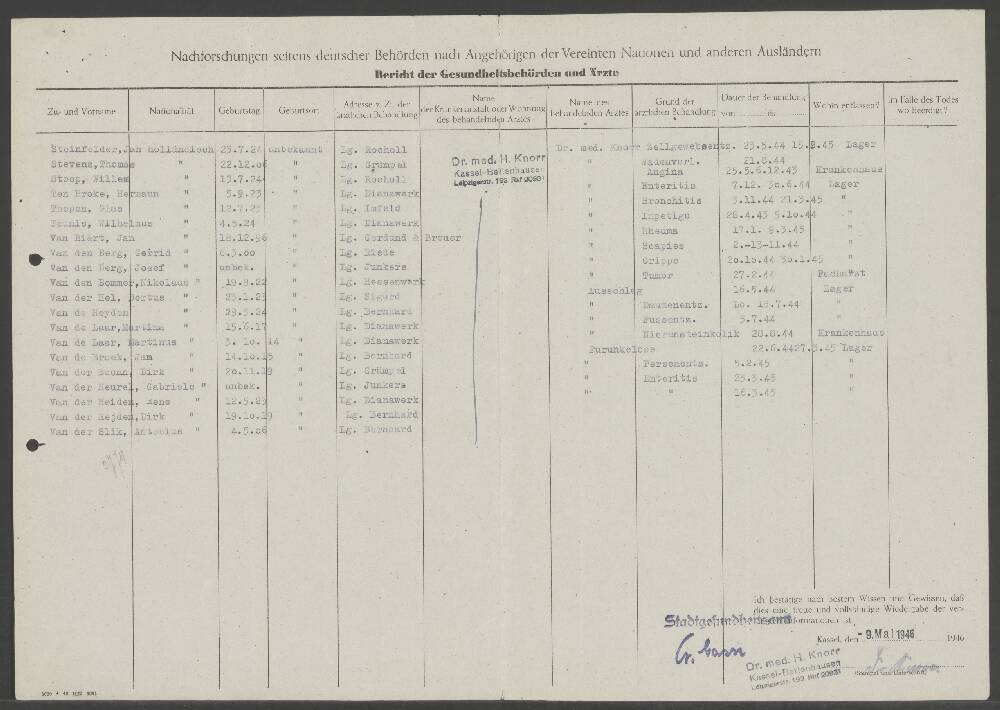 Nachforschungen seitens deutscher Behörden nach Angehörigen der Vereinten Nationen und anderen Ausländern
Bericht der Gesundheitsbehörden und Ärzte
Zu- und Vorname Nationalität Geburtstag Geburtsort Adresse z. Zt. der ärztlichen Behandlung Name der Krankenanstalt oder Wohnung des behandelnden Arztes Name des behandelnden Arztes Grund der ärztlichen Behandlung Dauer der Behandlung von bis Wohin entlassen? Im Falle des Todes wo beerdigt?
Steinfelder, Jan holländisch 23.7.24 unbekannt Lg. Rocholl Dr. med. Knorr Zellgewebsentz. 23.5.44 15.8.45 Lager
Stevens, Thomas " 22.12.06 " Lg. Grümpel " Wadenverl. 21.8.44
Stoop, Willem " 13.7.24 " Lg. Rocholl Angina 25.5.6.12.43 Krankenhaus
Ten Broke, Hermann " 5.9.23 " Lg. Dianawerk " Enteritis 7.12. 30.6.44 Lager
12.7.23 " Lg. Imfeld " Bronchitis 3.11.44 21.3.45 "
Wilhelmus " 4.5.24 " Lg. Dianawerk " Impetigo 28.4.43 9.10.44 "
Van Biert, Jan " 18.12.96 " Lg. Gerdund & Breuer " Rheuma 17.1. 8.3.45 "
Van den Berg, Gerrid " 6.3.00 " Lg. Diede " Scapies 2.-13-11.44 "
Van den Berg, Josef " unbek. " Lg. Junkers " Grippe 20.10.44 30.1.45 "
Van den Bommer, Nikolaus " 19.9.22 " Lg. Hessenwerk " Tumor 27.2.44 Fachartzt
Van der Hel, Dortus " 23.1.23 " Lg. Sigurd Ausschlag 16.5.44 Lager
Van de Heyden " 29.5.24 " Lg. Bernhard " Daumenentz. 15.7.44 "
Van de Laar, Martina " 15.6.17 " Lg. Dianawerk " Fussentz. 3.7.44 "
Van de Laar, Martinus " 3.10.14 " Lg. Dianawerk " Nierensteinkolik 28.8.44 Krankenhaus
Van de Broek, Jan " 14.10.15 " Lg. Bernhard Furunkelose 22.6.4427.3.45 Lager
Van der Boonn, Dirk " 20.11.19 " Lg. Grümpel " 5.2.45 "
Van der Heurel, Gabriele " unbek. " Lg. Junkers " Enteritis 23.3.45 "
Van der Heiden, " 12.5.23 " Lg. Dianawerk " " 16.3.45 "
Van der Heyden, Dirk " 19.10.19 " Lg. Bernhard
Van der Slik, Antonius " 4.5.06 " Lg. Bernhard
Dr. med. H. Knorr
Kassel-Bettenhausen
Leipzigerstr. 192 Ruf 20931
Ich bestätige nach bestem Wissen und Gewissen, daß
dies eine treue und vollständige Wiedergabe der
Informationen ist.
Stadtgesundheitsamt
Kassel, den - 9. Mai 1946 1946
Dr. med. H. Knorr
Kassel-Bettenhausen
Leipzigerstr. 192 Ruf 20931
(Stempel und Unterschrift)